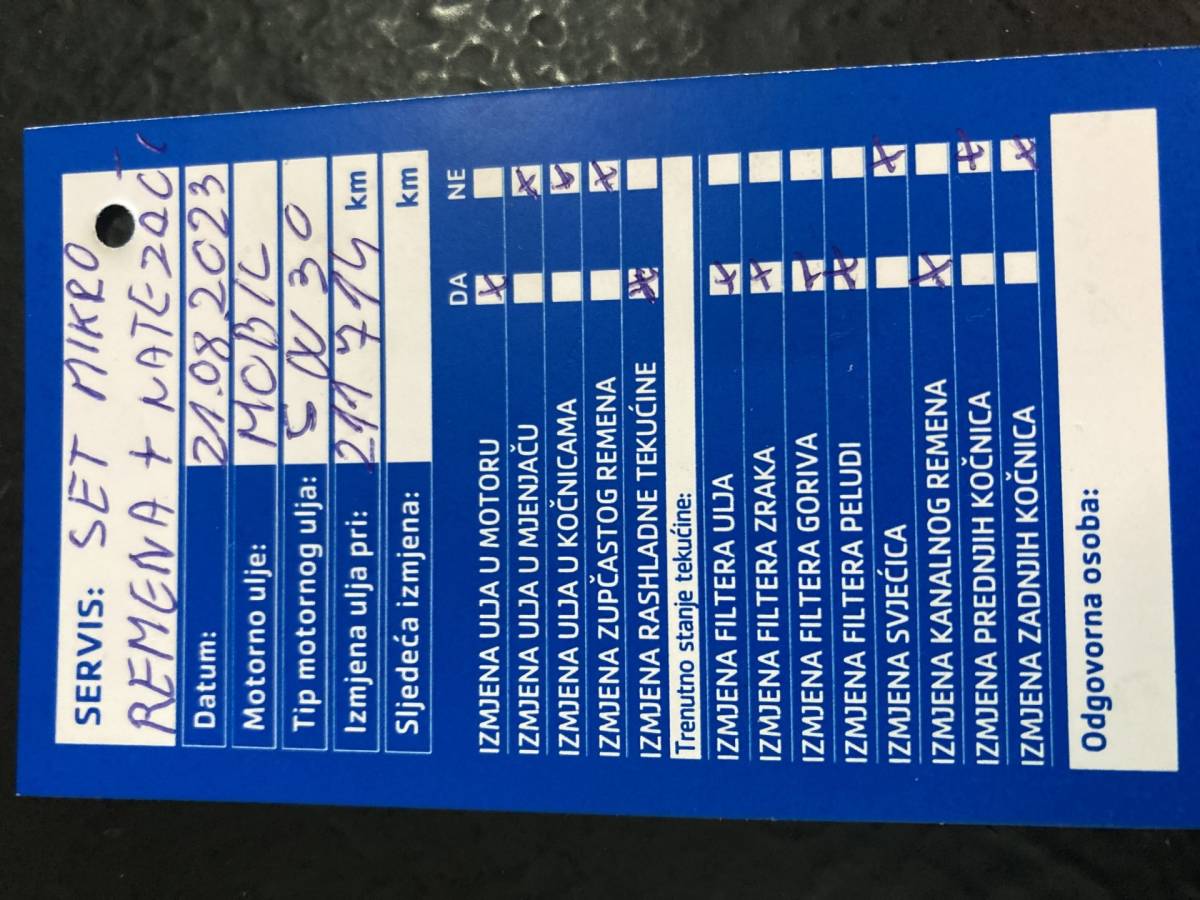 SERVIS: SET MIKRO
REMENA + NATEZAČ
Datum: 21.08.2023
Motorno ulje: MOBIL
Tip motornog ulja: 5W30
Izmjena ulja pri: 211714 km
Sljedeća izmjena: km
DA NE
IZMJENA ULJA U MOTORU X
IZMJENA ULJA U MJENJAČU X
IZMJENA ULJA U KOČNICAMA X
IZMJENA ZUPČASTOG REMENA X
IZMJENA RASHLADNE TEKUĆINE X
Trenutno stanje tekućine:
IZMJENA FILTERA ULJA X
IZMJENA FILTERA ZRAKA X
IZMJENA FILTERA GORIVA X
IZMJENA FILTERA PELUDI X
IZMJENA SVJEĆICA X
IZMJENA KANALNOG REMENA X
IZMJENA PREDNJIH KOČNICA X
IZMJENA ZADNJIH KOČNICA X
Odgovorna osoba: